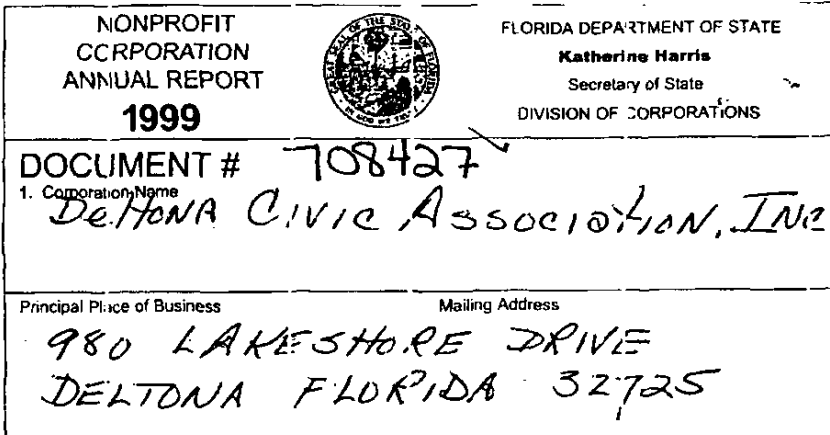 NONPROFIT
CORPORATION
ANNUAL REPORT
1999
FLORIDA DEPARTMENT OF STATE
Katherine Harris
Secretary of State
DIVISION OF CORPORATIONS
DOCUMENT # 708427
1. Corporation Name
DeltoNA CIVIC ASSOCIATION, INC
Principal Place of Business Mailing Address
980 LAKESHORE DRIVE
DELTONA FLORIDA 32725